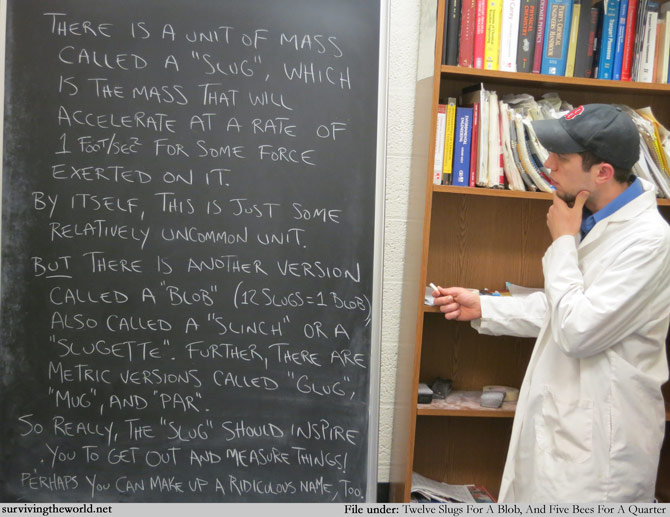 THERE IS A UNIT OF MASS
CALLED A "SLUG", WHICH
IS THE MASS THAT WILL
ACCELERATE AT A RATE OF
1 FOOT/SEC² FOR SOME FORCE
EXERTED ON IT.
BY ITSELF, THIS IS JUST SOME
RELATIVELY UNCOMMON UNIT.
BUT THERE IS ANOTHER VERSION
CALLED A "BLOB" (12 SLUGS = 1 BLOB),
ALSO CALLED A "SLINCH" OR A
"SLUGETTE". FURTHER, THERE ARE
METRIC VERSIONS CALLED "GLUG",
"MUG", AND "PAR".
SO REALLY, THE "SLUG" SHOULD INSPIRE
YOU TO GET OUT AND MEASURE THINGS!
PERHAPS YOU CAN MAKE UP A RIDICULOUS NAME, TOO.
survivingtheworld.net
File under: Twelve Slugs For A Blob, And Five Bees For A Quarter